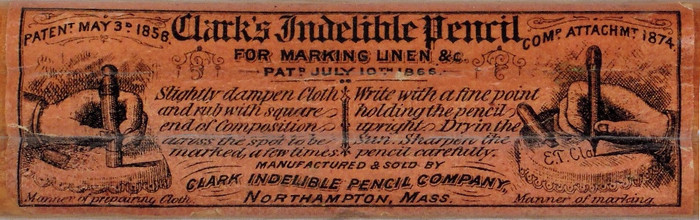 PATENT MAY 3D. 1858.
Clark's Indelible Pencil
COMP. ATTACHMT. 1874.
FOR MARKING LINEN &c.
PATD. JULY 10TH. 1866.
Slightly dampen Cloth
and rub with square
end of Composition
across the spot to be
marked, a few lines.
Write with a fine point
holding the pencil
upright. Dry in the
Sun. Sharpen the
pencil carefully.
E.T. Cla
MANUFACTURED & SOLD BY
CLARK INDELIBLE PENCIL COMPANY,
NORTHAMPTON, MASS.
Manner of preparing Cloth.
Manner of marking.